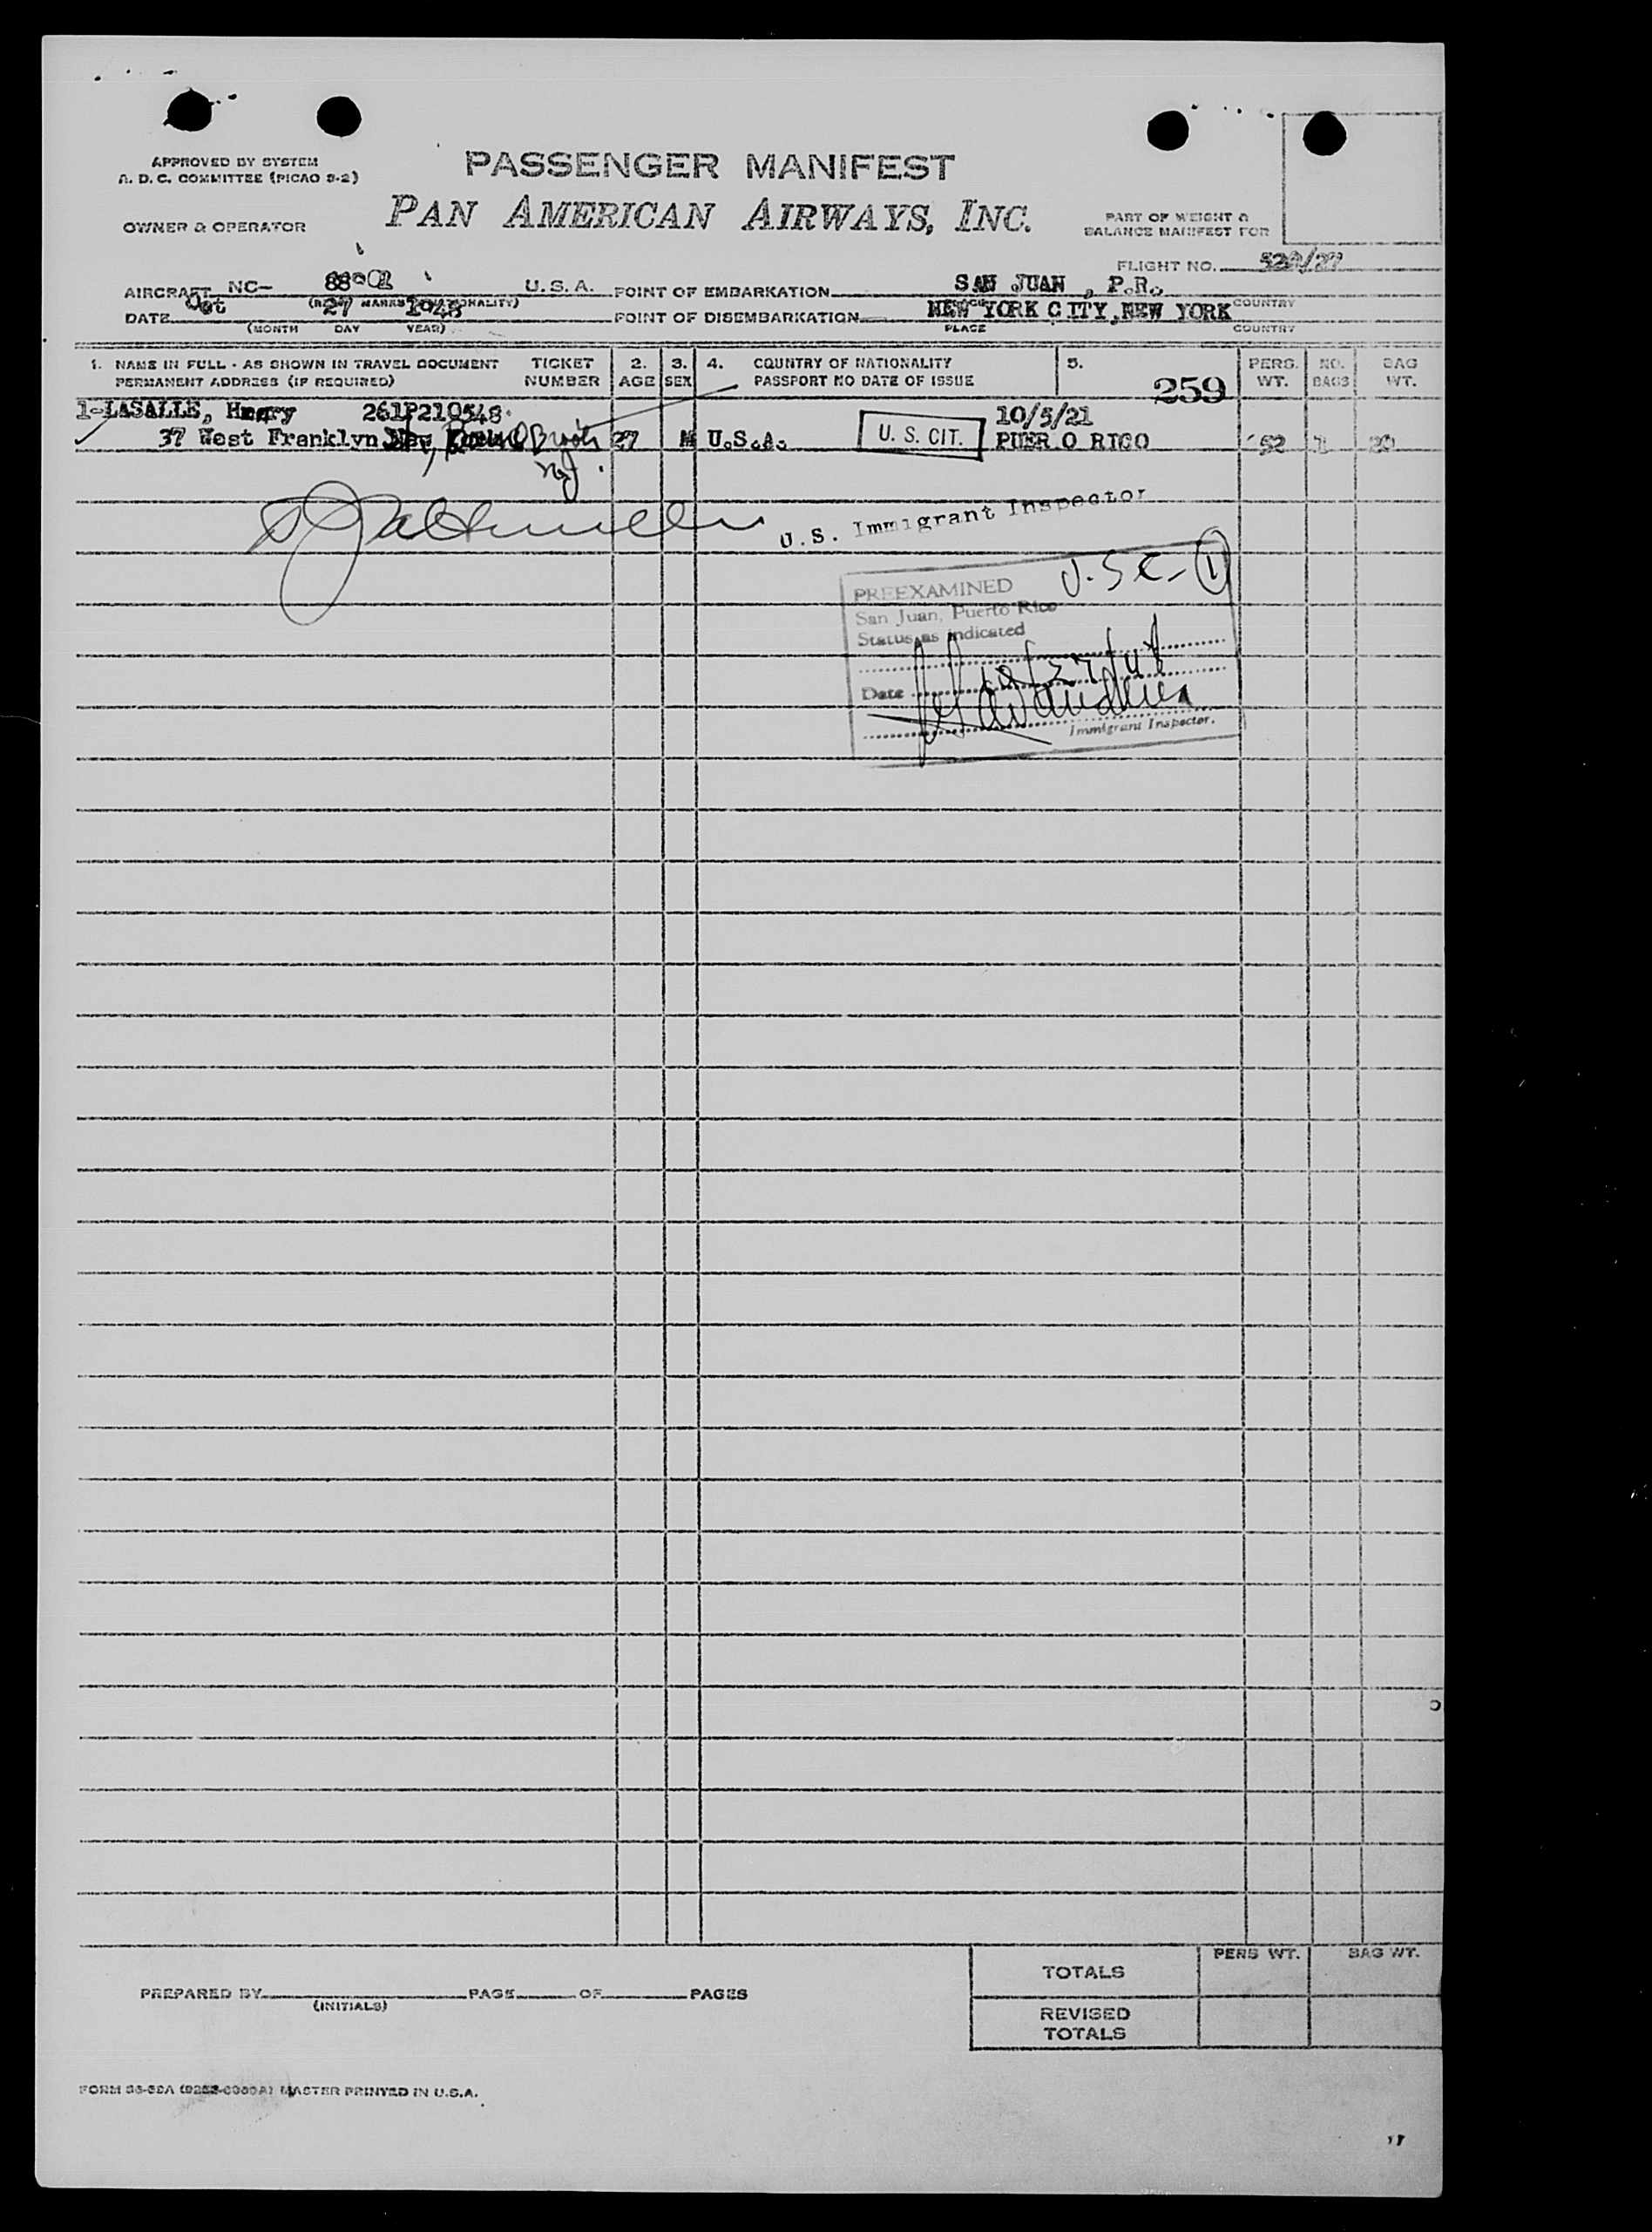 APPROVED BY SYSTEM
A. D. C. COMMITTEE (PICAO 9-2)
PASSENGER MANIFEST
OWNER & OPERATOR
PAN AMERICAN AIRWAYS, INC.
PART OF WEIGHT &
BALANCE MANIFEST FOR
FLIGHT NO.
AIRCRAFT NC- U.S.A. POINT OF EMBARKATION SAN JUAN, P.R. COUNTRY
DATE Oct 27 1948 POINT OF DISEMBARKATION NEW YORK CITY, NEW YORK
(MONTH DAY YEAR) PLACE COUNTRY
1. NAME IN FULL - AS SHOWN IN TRAVEL DOCUMENT TICKET 2. 3. 4. COUNTRY OF NATIONALITY 5. PERS. NO. BAG
PERMANENT ADDRESS (IF REQUIRED) NUMBER AGE SEX PASSPORT NO DATE OF ISSUE 259 WT. BAGS WT.
1-LASALLE, 261P210548 10/5/21
37 West Franklyn 27 M U.S.A. U. S. CIT. PUER O RICO 1
NJ.
U.S. Immigrant Inspector
U.S.C- 1
PREEXAMINED
San Juan, Puerto Rico
Status as indicated
Date 10/27/48
Immigrant Inspector.
TOTALS PERS WT. BAG WT.
PREPARED BY PAGE OF PAGES
(INITIALS)
REVISED
TOTALS
MASTER PRINTED IN U.S.A.